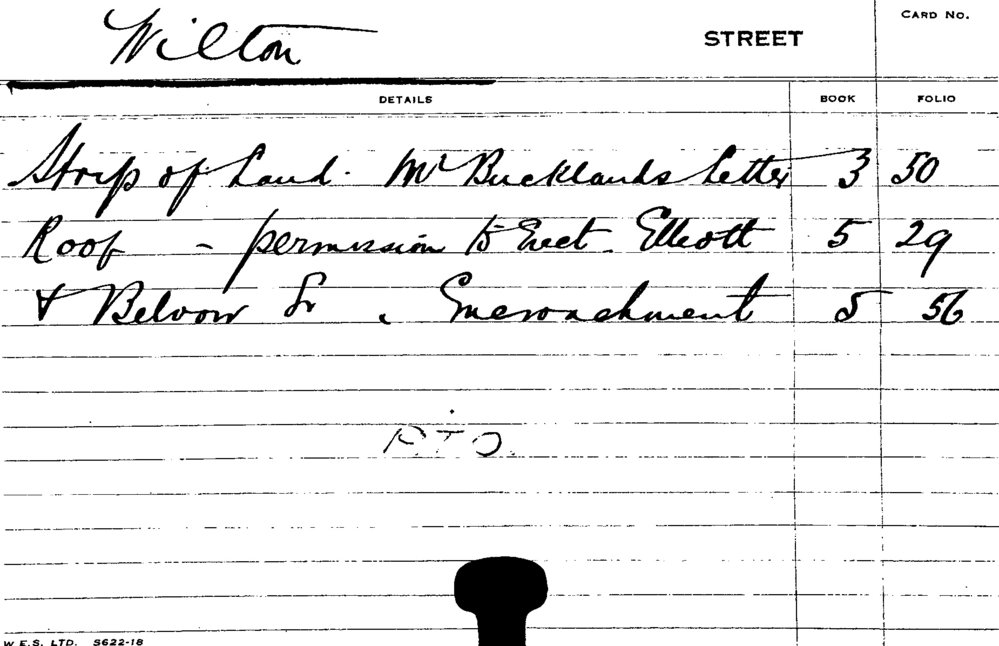 Wilton STREET CARD No.
DETAILS BOOK FOLIO
Strip of Land. Mr Bucklands Letter 3 50
Roof - permission to Erect. Elleott 5 29
& Belvoir St , Encroachment 5 56
P.T.O.
W.E.S. LTD. S622-18